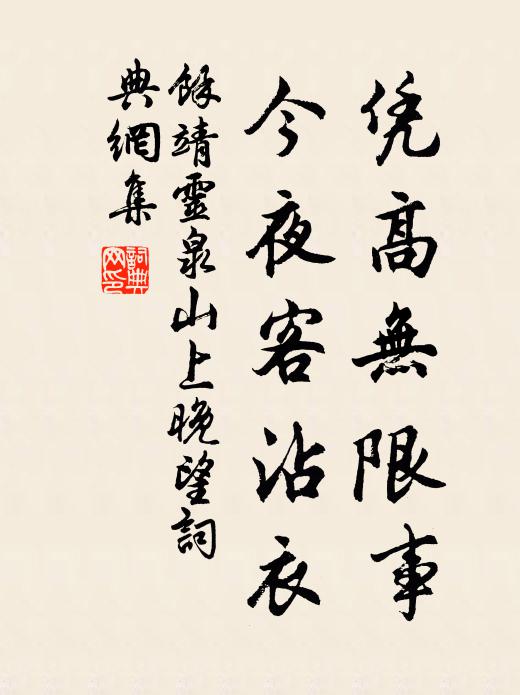 凭高無限事
今夜客沾衣
餘靖靈泉山上晚望詞
典網集
詞典
网印